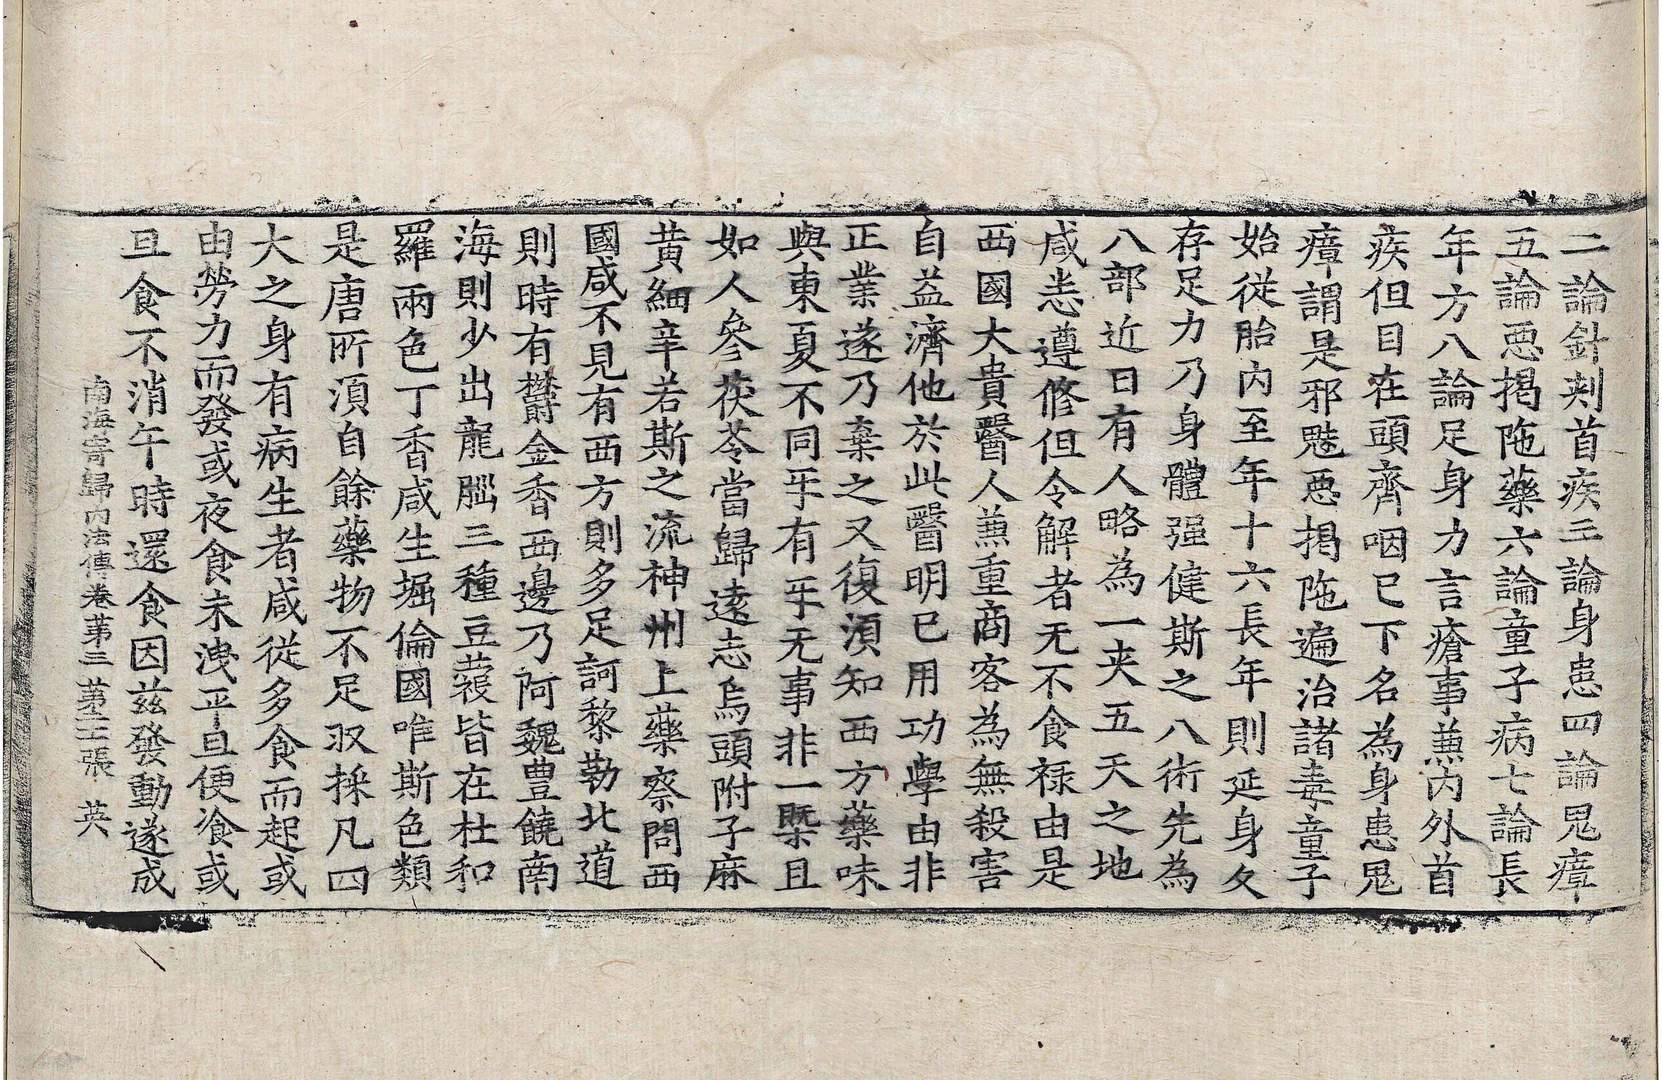 二論針刾首疾三論身患四論鬼瘴
五論惡揭陁藥六論童子病七論長
年方八論足身力言瘡事兼內外首
疾但目在頭齊咽已下名為身患鬼
瘴謂是邪魅惡揭陁遍治諸毒童子
始從胎內至年十六長年則延身久
存足力乃身體强健斯之八術先為
八部近日有人略為一夾五天之地
咸悉遵修但令解者无不食祿由是
西國大貴醫人兼重商客為無殺害
自益濟他於此醫明已用功學由非
正業遂乃棄之又復湏知西方藥味
與東夏不同𤓰有𤓰无事非一槩且
如人參茯苓當歸遠志烏頭附子麻
黃細辛若斯之流神州上藥察問西
國咸不見有西方則多足訶黎勒北道
則時有欝金香西邊乃阿魏豊饒南
海則少出龍𦝫三種豆蔲皆在杜和
羅兩色丁香咸生堀倫國唯斯色類
是唐所湏自餘藥物不足収採凡四
大之身有病生者咸從多食而起或
由勞力而發或夜食未洩平旦便飡或
旦食不消午時還食因兹發動遂成
南海寄歸內法傳卷第三 第二十張 英